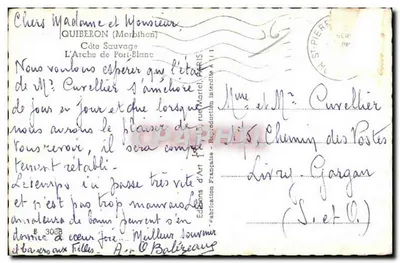 Chers Madame et Monsieur
QUIBERON (Morbihan)
Côte Sauvage
L'Arche de Port-Blanc
Nous voulons espérer que l'état
de Mr Cuvellier s'améliore
de jour en jour et que lorsque
nous aurons le plaisir de
vous revoir, il sera complè
tement rétabli.
Le temps ici passe très vite
et n'est pas trop mauvais. Les
amateurs de bains peuvent s'en
donner à coeur joie. Meilleur souvenir
et baisers aux Filles.
B 3038
Mme et Mr Cuvellier
Chemin des Postes
Livry-Gargan
(S.et O.)
ST PIERRE
Editions d'Art
PARIS
Reproduction interdite